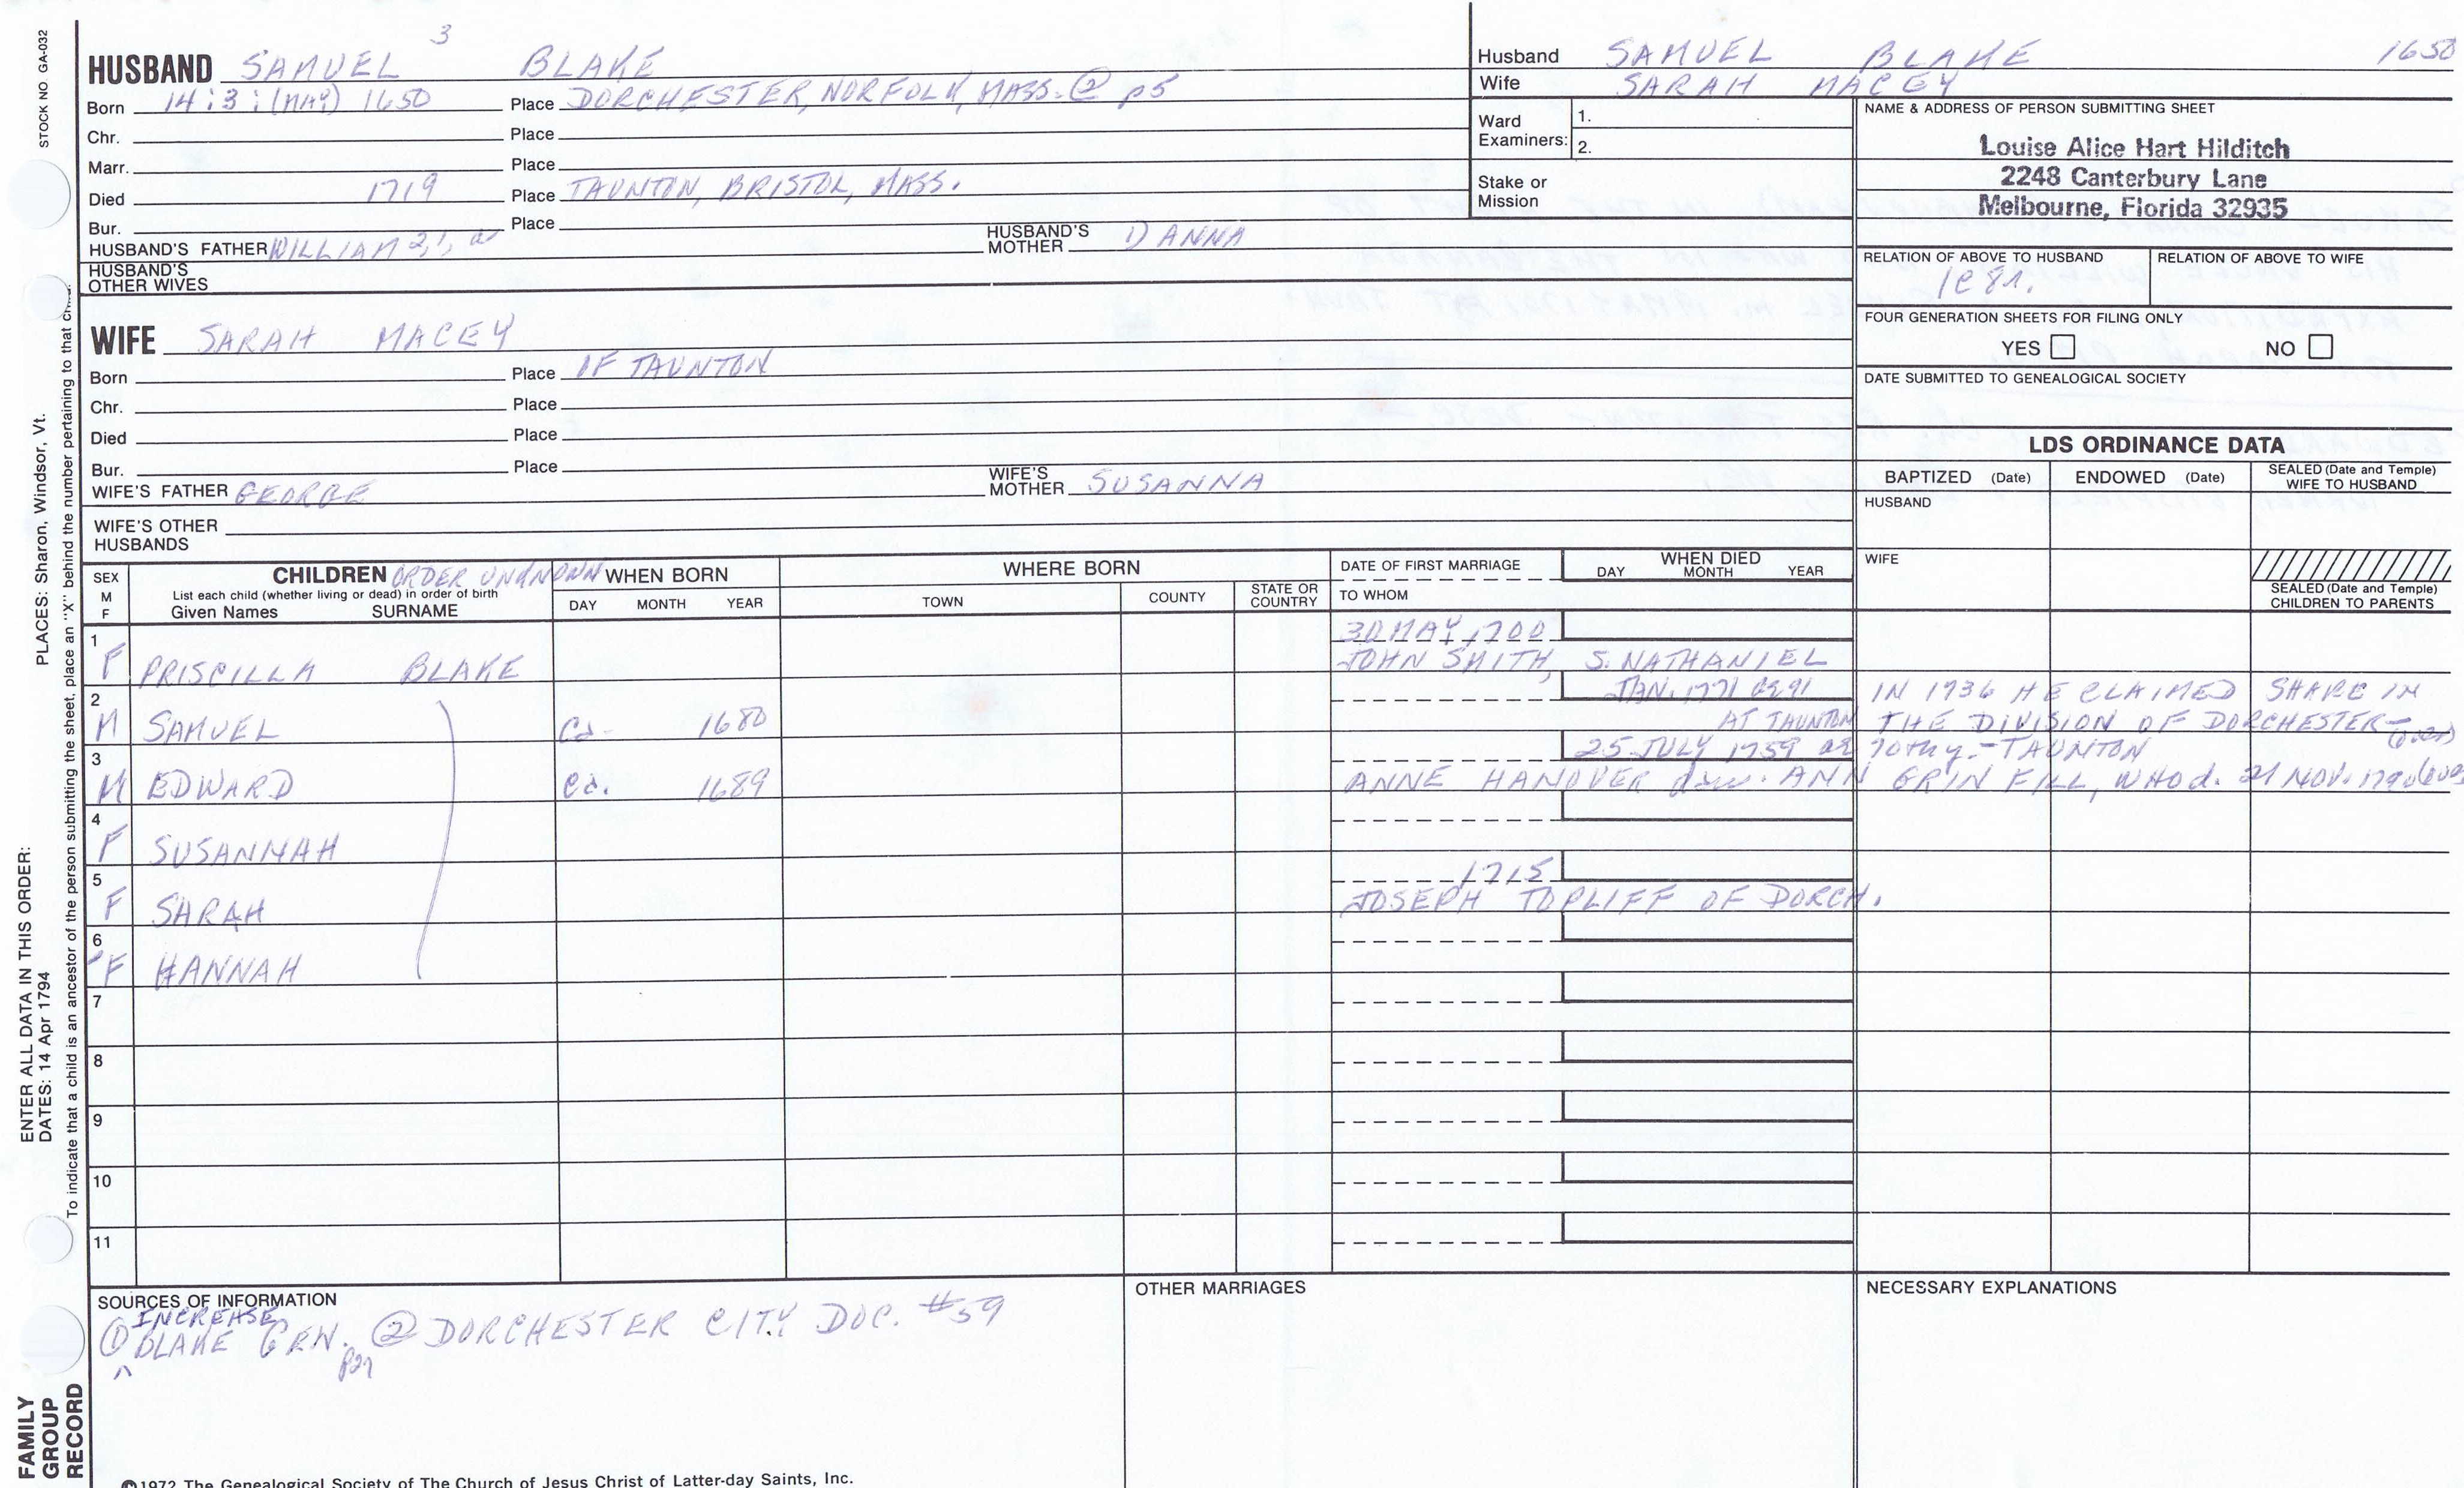 STOCK NO GA-032
PLACES: Sharon, Windsor, Vt.
ENTER ALL DATA IN THIS ORDER:
DATES: 14 Apr 1794
To indicate that a child is an ancestor of the person submitting the sheet, place an "X" behind the number pertaining to that
FAMILY
GROUP
RECORD
3
HUSBAND SAMUEL BLAKE
Born 14:3:(MAY) 1650 Place DORCHESTER, NORFOLK, MASS. ② p5
Chr. Place
Marr. Place
Died 1719 Place TAUNTON, BRISTOL, MASS.
Bur. Place
HUSBAND'S FATHER WILLIAM 2,1, HUSBAND'S MOTHER 1) ANNA
HUSBAND'S
OTHER WIVES
WIFE SARAH MACEY
Born Place OF TAUNTON
Chr. Place
Died Place
Bur. Place
WIFE'S FATHER GEORGE WIFE'S MOTHER SUSANNA
WIFE'S OTHER
HUSBANDS
Husband SAMUEL BLAKE 1650
Wife SARAH MACEY
Ward
Examiners: 1.
2.
Stake or
Mission
NAME & ADDRESS OF PERSON SUBMITTING SHEET
Louise Alice Hart Hilditch
2248 Canterbury Lane
Melbourne, Florida 32935
RELATION OF ABOVE TO HUSBAND RELATION OF ABOVE TO WIFE
FOUR GENERATION SHEETS FOR FILING ONLY
YES NO
DATE SUBMITTED TO GENEALOGICAL SOCIETY
LDS ORDINANCE DATA
BAPTIZED (Date) ENDOWED (Date) SEALED (Date and Temple)
WIFE TO HUSBAND
HUSBAND
WIFE
SEALED (Date and Temple)
CHILDREN TO PARENTS
SEX
M
F
CHILDREN ORDER UNKNOWN
List each child (whether living or dead) in order of birth
Given Names SURNAME
WHEN BORN
DAY MONTH YEAR
WHERE BORN
TOWN COUNTY STATE OR COUNTRY
DATE OF FIRST MARRIAGE
TO WHOM
WHEN DIED
DAY MONTH YEAR
1 30 MAY 1700
F PRISCILLA BLAKE JOHN SMITH, S. NATHANIEL
2 JAN. 1771 ae 91 IN 1736 HE CLAIMED SHARE IN
M SAMUEL Ca. 1680 AT TAUNTON THE DIVISION OF DORCHESTER— (over)
3 25 JULY 1759 ae 70thy.-TAUNTON
M EDWARD Ca. 1689 ANNE HANOVER ANN GRINFILL, WHO d. 21 NOV. 1790
4
F SUSANNAH
5 1715
F SARAH JOSEPH TOPLIFF OF DORCH.
6
F HANNAH
7
8
9
10
11
SOURCES OF INFORMATION
INCREASE
① BLAKE GEN. ② DORCHESTER CITY DOC. #59
OTHER MARRIAGES
NECESSARY EXPLANATIONS
©1972 The Genealogical Society of The Church of Jesus Christ of Latter-day Saints, Inc.